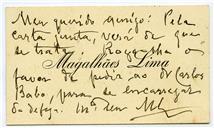 Meu querido amigo: Pela
carta junta, verá de que
se trata. Rogo-lhe o
Magalhães Lima
favor de pedir ao Dr Carlos
Babo, para se encarregar
da defeza. Mto seu ML